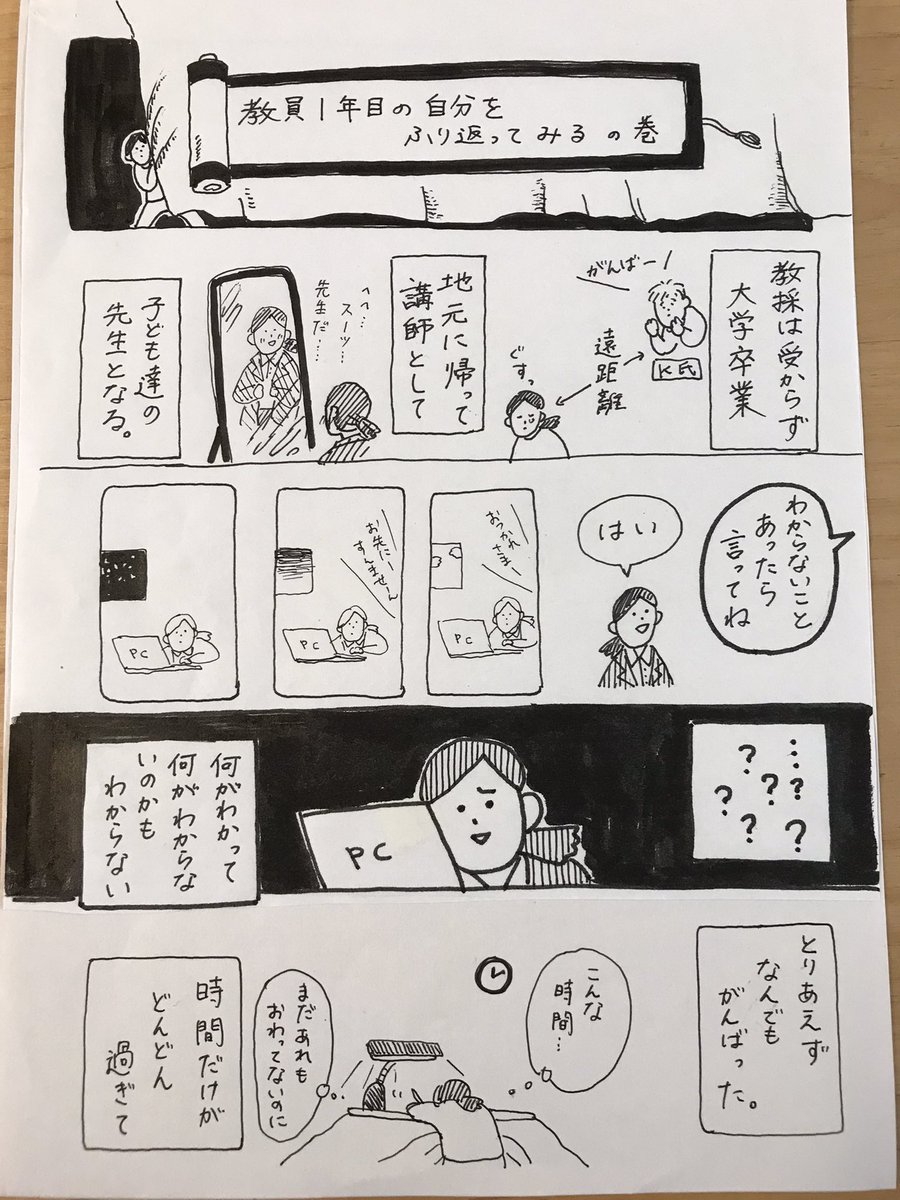 教員1年目の自分を
ふり返ってみるの巻
教採は受からず
大学卒業
がんばー!
K氏
遠距離
ぐすっ
地元に帰って
講師として
へへ…
スーツ…
先生だ…
子ども達の
先生となる。
わからないこと
あったら
言ってね
はい
おつかれ
さま
PC
お先にー
すんませーん
PC
PC
…
?
?
?
?
?
?
PC
何がわかって
何がわからな
いのかも
わからない
とりあえず
なんでも
がんばった。
こんな
時間…
まだあれも
おわってないのに
時間だけが
どんどん
過ぎて